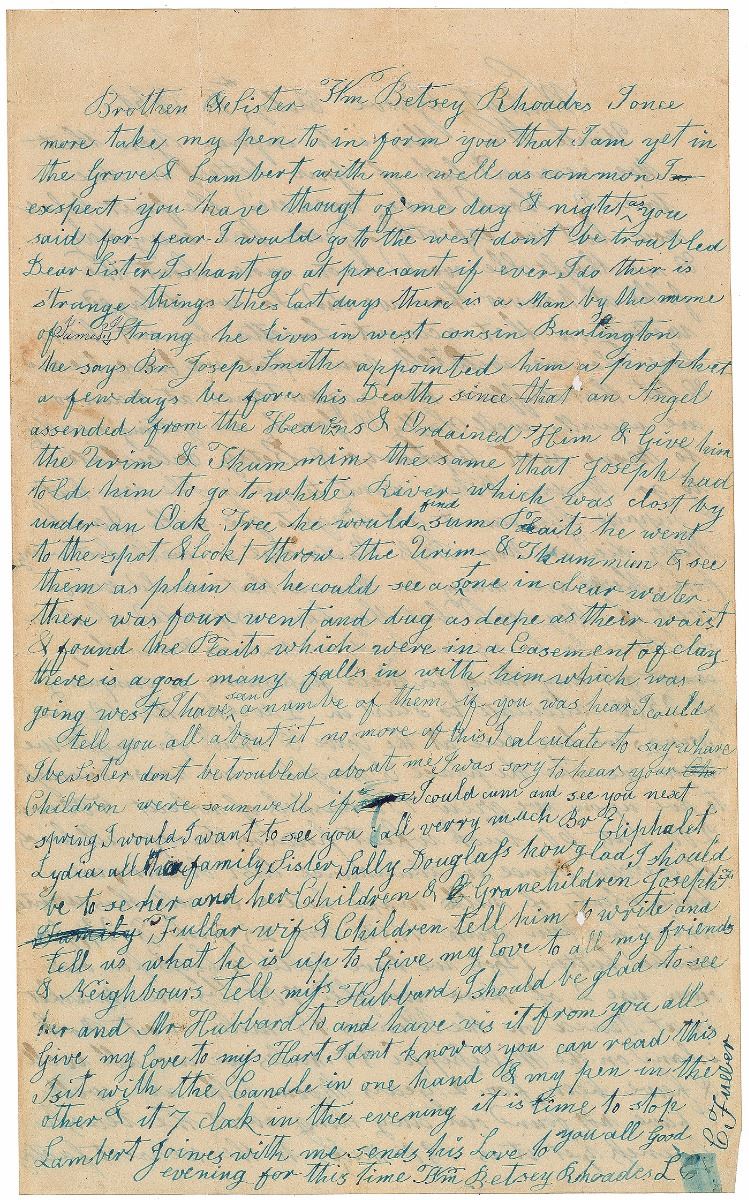 Brother & Sister Wm Betsey Rhoades I once
more take my pen to in form you that I am yet in
the Grove & Lambert with me well as common I
exspect you have thougt of me day & night as you
said for fear I would go to the west dont be troubled
Dear Sister I shant go at presant if ever I do ther is
strange things thes last days there is a Man by the name
of James J Strang he lives in west consin Burlington
he says Br Josep Smith appointed him a prophet
a few days be fore his Death since that an Angel
assended from the Heavns & Ordained Him & Give him
the Urim & Thummim the same that Joseph had
told him to go to white River which was clost by
under an Oak Tree he would find sum Plaits he went
to the spot & lookt throw the Urim & Thummim & see
them as plain as he could see a stone in clear water
there was four went and dug as deepe as their waist
& found the Plaits which were in a Casement of clay
there is a good many falls in with him which was
going west I have sean a numbe of them if you was hear I could
tell you all about it no more of this I calculate to say whare
I be Sister dont be troubled about me I was sory to hear your
Children were so unwell if I could cum and see you next
spring I would I want to see you all verry much Br Eliphalet
Lydia all the family Sister Sally Douglass how glad I should
be to se her and her Children & Granchildren Joseph
Family Fullar wif & Children tell him to write and
tell us what he is up to Give my love to all my friends
& Neighbours tell miss Hubbard I should be glad to see
her and Mr Hubbard to and have vis it from you all
Give my love to miss Hart I dont know as you can read this
I sit with the Candle in one hand & my pen in the
other & it 7 clak in the evening it is time to stop
Lambert Joines with me sends his Love to you all good
evening for this time Wm Betsey Rhoades L
C Fuller